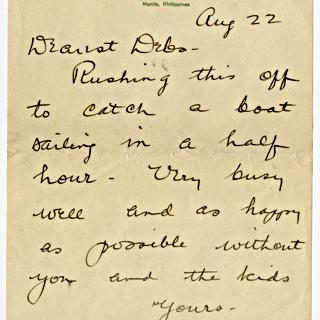 Manila, Philippines
Aug 22
Dearest Debs-
Rushing this off
to catch a boat
sailing in a half
hour - Very busy
well and as happy
as possible without
you and the kids
"Yours-